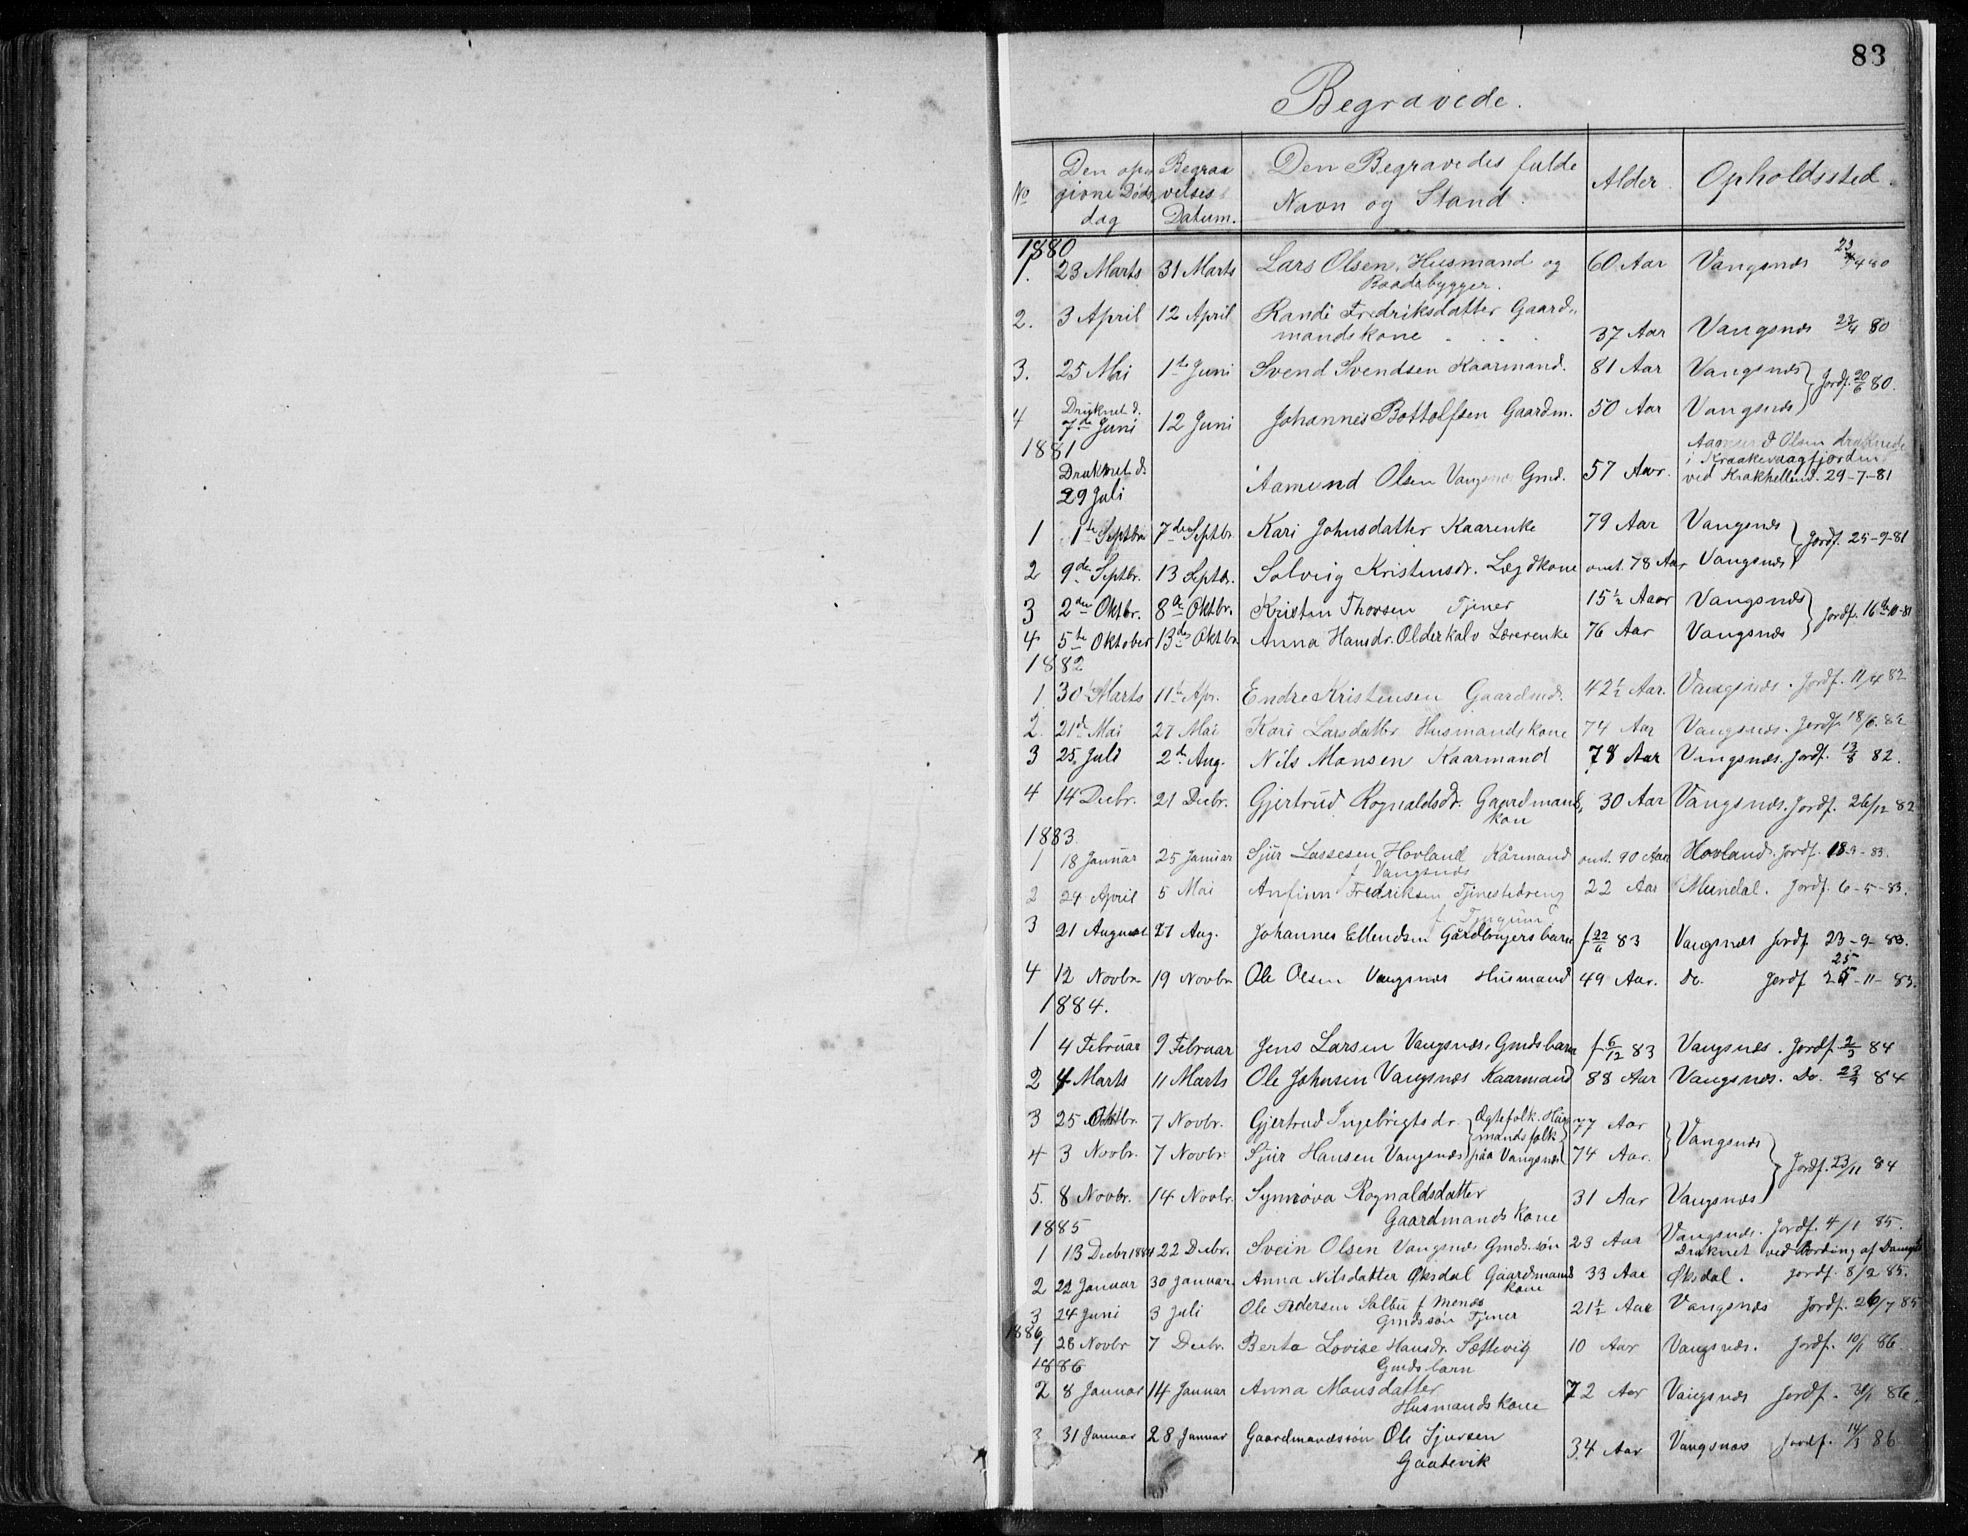 83
Begravede.
No
Den opgivne Døds dag
Begravelses Datum.
Den Begravedes fulde Navn og Stand.
Alder.
Opholdssted.
1880
1. 23 Marts 31 Marts Lars Olsen, Husmand og 60 Aar Vangsnæs 23/4 80
Baadebygger.
2. 3 April 12 April Randi Fredriksdatter Gaard-
mandskone . . . 37 Aar Vangsnæs 23/4 80
3. 25 Mai 1ste Juni Svend Svendsen Kaarmand. 81 Aar Vangsnæs } Jordf. 20/6 80.
4 Druknet d. 7de Juni 12 Juni Johannes Bottolfsen Gaardm. 50 Aar Vangsnæs
1881
Druknet d. 29 Juli Aamund Olsen Vangsnæs Gmd. 57 Aar. Aamund Olsen druknede
i Kraakevaagfjorden
ved Krakhellend. 29-7-81
1 1ste Septbr 7de Septbr. Kari Johnsdatter Kaarenke 79 Aar Vangsnæs } Jordf. 25-9-81
2 9de Septbr. 13 Septbr. Solveig Kristensdr. Lægdkone omt. 78 Aar Vangsnæs
3 2den Oktbr. 8de Oktbr. Kristen Thorsen Tjener 15½ Aar Vangsnæs } Jordf. 16de-10-81
4 5te Oktober 13de Oktbr. Anna Hansdr. Olderkalv Lærerenke 76 Aar Vangsnæs
1882
1 30 Marts 11te Apr. Endre Kristensen Gaardmd. 42½ Aar. Vangsnæs. Jordf. 11/4 82
2. 21de Mai 27 Mai Kari Larsdatter Husmandskone 74 Aar Vangsnæs. Jordf. 18/6. 82
3 25. Juli 2de Aug. Nils Monsen Kaarmand 78 Aar Vangsnæs. Jordf. 13/8 82.
4 14 Decbr. 21 Decbr. Gjertrud Rognaldsdr. Gaardmands 30 Aar Vangsnæs. Jordf. 26/12 82
kone
1883.
1 18 Januar 25 Januar Sjur Lassesen Hovland Kårmand omt. 90 Aar Hovland. Jordf. 18-3-83.
f. Vangsnæs
2 24 April 5 Mai Anfinn Fredriksen Tjenestedreng 22 Aar Mundal. Jordf. 6-5-83.
f. Tjugum
3 21 August 27 Aug. Johannes Ellendsen Gårdbrugers barn f 22/6 83 Vangsnæs Jordf 23-9-83.
4 12 Novbr. 19 Novbr. Ole Olsen Vangsnæs Husmand 49 Aar. Do. Jordf 25-11-83.
25
1884.
1 4 Februar 9 Februar Jens Larsen Vangsnæs, Gmdsbarn f 6/12 83 Vangsnæs. Jordf. 2/3 84
2 4 Marts 11 Marts Ole Johnsen Vangsnæs Kaarmand 88 Aar Vangsnæs. Do. 23/3 84
3 25 Oktbr. 7 Novbr. Gjertrud Ingebrigtsdr. { Ægtefolk. Hus- 77 Aar } Vangsnæs
mandsfolk
4 3 Novbr. 7 Novbr. Sjur Hansen Vangsnæs } paa Vangsnæs 74 Aar. } Jordf. 23/11 84
5. 8 Novbr. 14 Novbr. Synnøva Rognaldsdatter 31 Aar Vangsnæs
Gaardmandskone
1885
1 13 Decbr 1884 22 Decbr. Svein Olsen Vangsnæs Gmds. søn 23 Aar Vangsnæs. Jordf. 4/1 85.
Druknet ved Bording af
2 22 Januar 30 Januar. Anna Nilsdatter Øksdal Gaardmands 33 Aar Øksdal. Jordf. 8/2 85.
kone
3 24 Juni 3 Juli Ole Pedersen Salbu f Menæs 21½ Aar Vangsnæs Jordf. 26/7 85
Gmdssøn Tjener
1886
1 28 Novbr 7 Decbr. Berta Lovise Hansdr. Sættevig 10 Aar Vangsnæs. Jordf. 10/1 86
Gmdsbarn
1886
2 8 Januar 14 Januar Anna Monsdatter 72 Aar Vangsnæs Jordf. 31/1 86.
Husmandskone
3 31 Januar 28 Januar Gaardmandssøn Ole Sjursen
Gaatevik 34 Aar Vangsnæs Jordf. 14/3 86